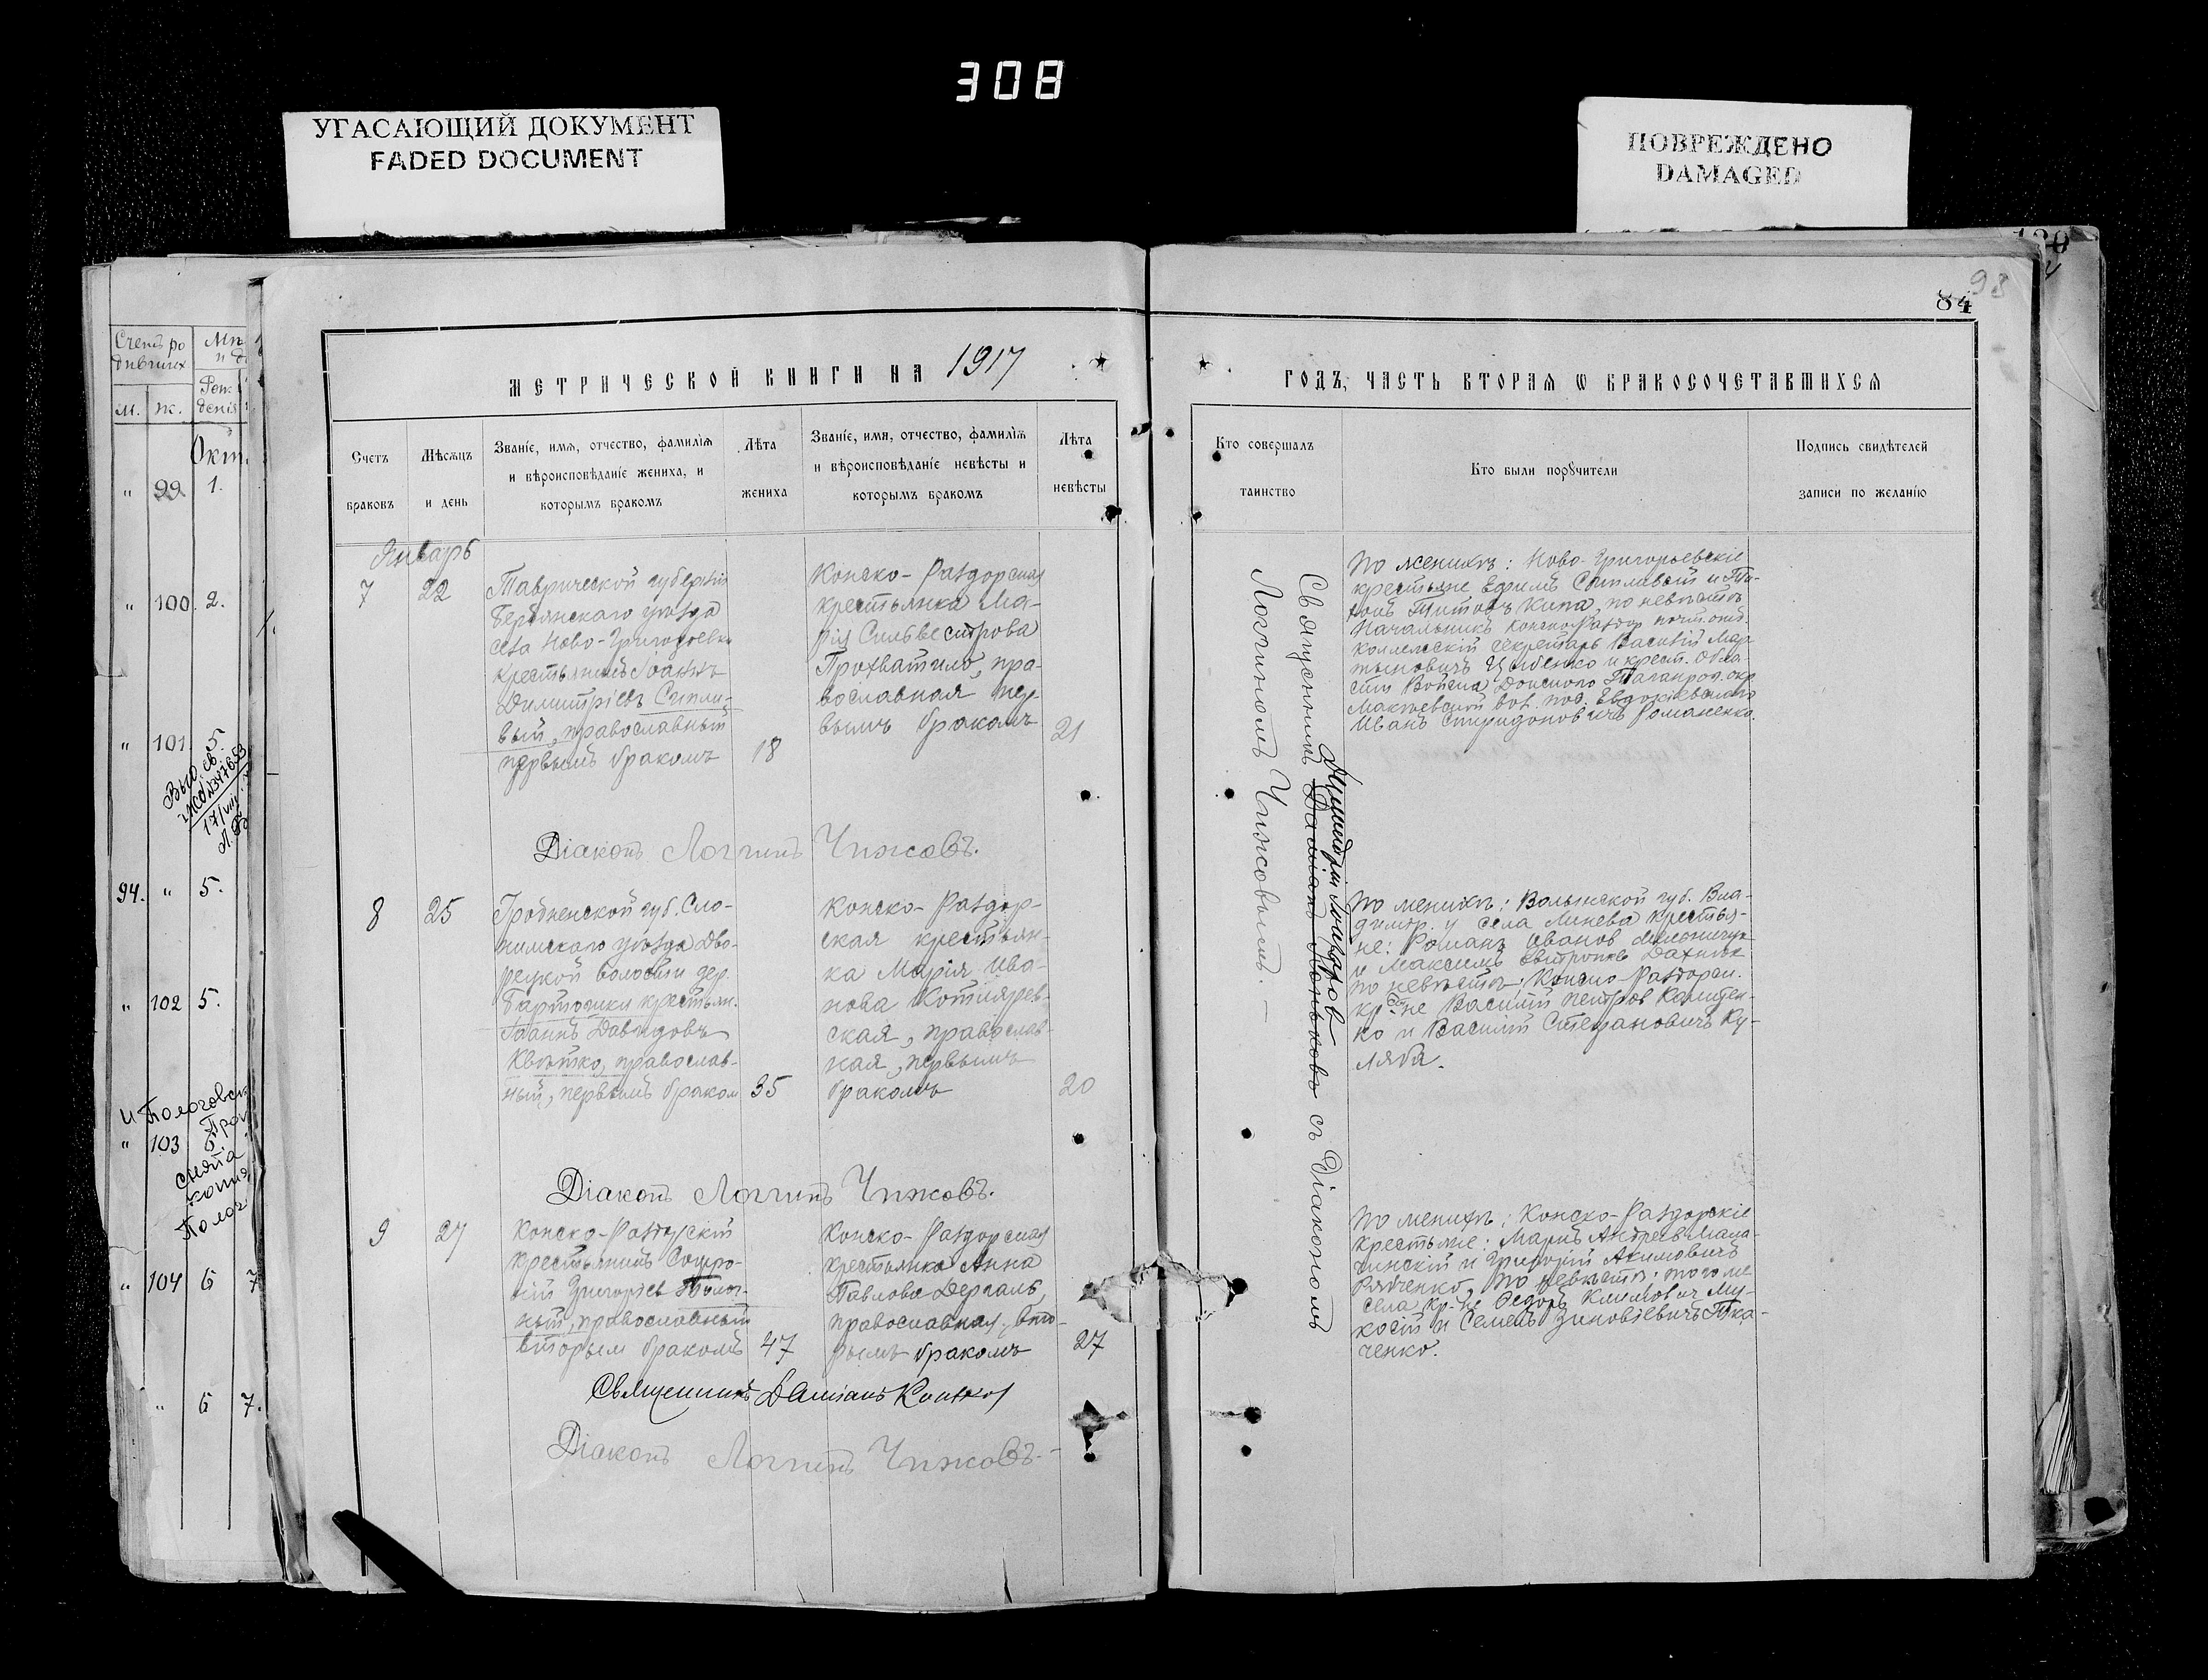 308
УГАСАЮЩИЙ ДОКУМЕНТ
FADED DOCUMENT
ПОВРЕЖДЕНО
DAMAGED
98
84
МЕТРИЧЕСКОЙ КНИГИ НА 1917
ГОДЪ, ЧАСТЬ ВТОРАЯ Ѡ БРАКОСОЧЕТАВШИХСЯ
Счетъ браковъ
Мѣсяцъ и день
Званіе, имя, отчество, фамилія
и вѣроисповѣданіе жениха, и
которымъ бракомъ
Лѣта
жениха
Званіе, имя, отчество, фамилія
и вѣроисповѣданіе невѣсты и
которымъ бракомъ
Лѣта
невѣсты
Кто совершалъ
таинство
Кто были поручители
Подпись свидѣтелей
записи по желанію
Январь
7
22
Таврической губерніи
Бердянскаго уѣзда
села Ново-Григорьевки
крестьянинъ Іоаннъ
Димитріевъ Сипли-
вый, православный
первымъ бракомъ
18
Конско-Раздорская
крестьянка Ма-
рія Сильвестрова
Прохватило, пра-
вославная пер-
вымъ бракомъ
21
По женихѣ: Ново-Григорьевскіе
крестьяне Ефимъ Сипливый и Ти-
Титовъ Кипа, по невѣстѣ
Начальникъ Конско-Раздор. почт. отд.
Коллежскій Секретарь Василій Мар-
тыновичъ Цыбенко и крест. Обла-
сти Войска Донского Таганрог. окр.
вол. пос.
Иванъ Спиридоновичъ Романенко.
Діаконъ Логгинъ Чижовъ.
8
25
Гродненской губ. Сло-
нимскаго уѣзда Дво-
рецкой волости дер.
крестьян.
Іоаннъ Давидовъ
Квѣтко, православ-
ный, первымъ браком
35
Конско-Раздор-
ская крестьян-
ка Марія Ива-
нова Котлярев-
ская, православ-
ная, первымъ
бракомъ
20
По женихѣ: Волынской губ. Вла-
димір. у села Линева крестья-
не: Романъ Иванов
и Максимъ
по невѣстѣ: Конско-Раздорск.
кр-не Василій Петров
ко и Василій Стефановичъ Ку-
ляба.
Діаконъ Логгинъ Чижовъ.
9
27
Конско-Раздорскій
крестьянинъ Софро-
ній Григоріев
православный
вторым бракомъ
47
Конско-Раздорская
крестьянка Анна
Павлова Дергаль,
православная, вто-
рымъ бракомъ
27
По женихѣ: Конско-Раздорскіе
крестьяне: Маркъ Андреев Мала-
чинскій и Григорій Акимовичъ
Рябченко, по невѣстѣ: того же
села кр-не Ѳедоръ Климович Му-
косій и Семенъ Зиновіевичъ Тка-
ченко.
Священникъ Даміанъ Коньков
Діаконъ Логгинъ Чижовъ.-
Священникъ Даміанъ Коньковъ съ Діакономъ
Логгиномъ Чижовымъ. —
М.
Ж.
Окт.
99
1.
100
2.
101
5.
94.
5.
102
5.
103
104
6
7
6
7.